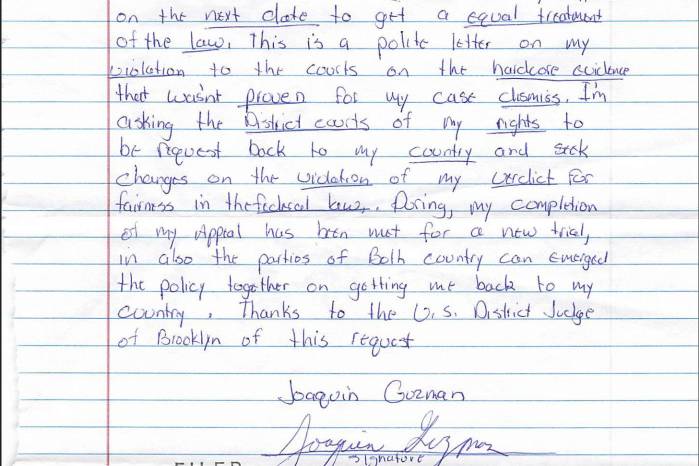 on the next date to get a equal treatment
of the law. This is a polite letter on my
violation to the courts on the hardcore evidence
that wasn't proven for my case dismiss. I'm
asking the District courts of my rights to
be request back to my country and seek
changes on the violation of my verdict for
fairness in the federal law. During, my completion
of my Appeal has been met for a new trial,
in also the parties of Both country can emerged
the policy together on getting me back to my
country. Thanks to the U.S. District Judge
of Brooklyn of this request
Joaquin Guzman
Joaquin Guzman
signature
FILED